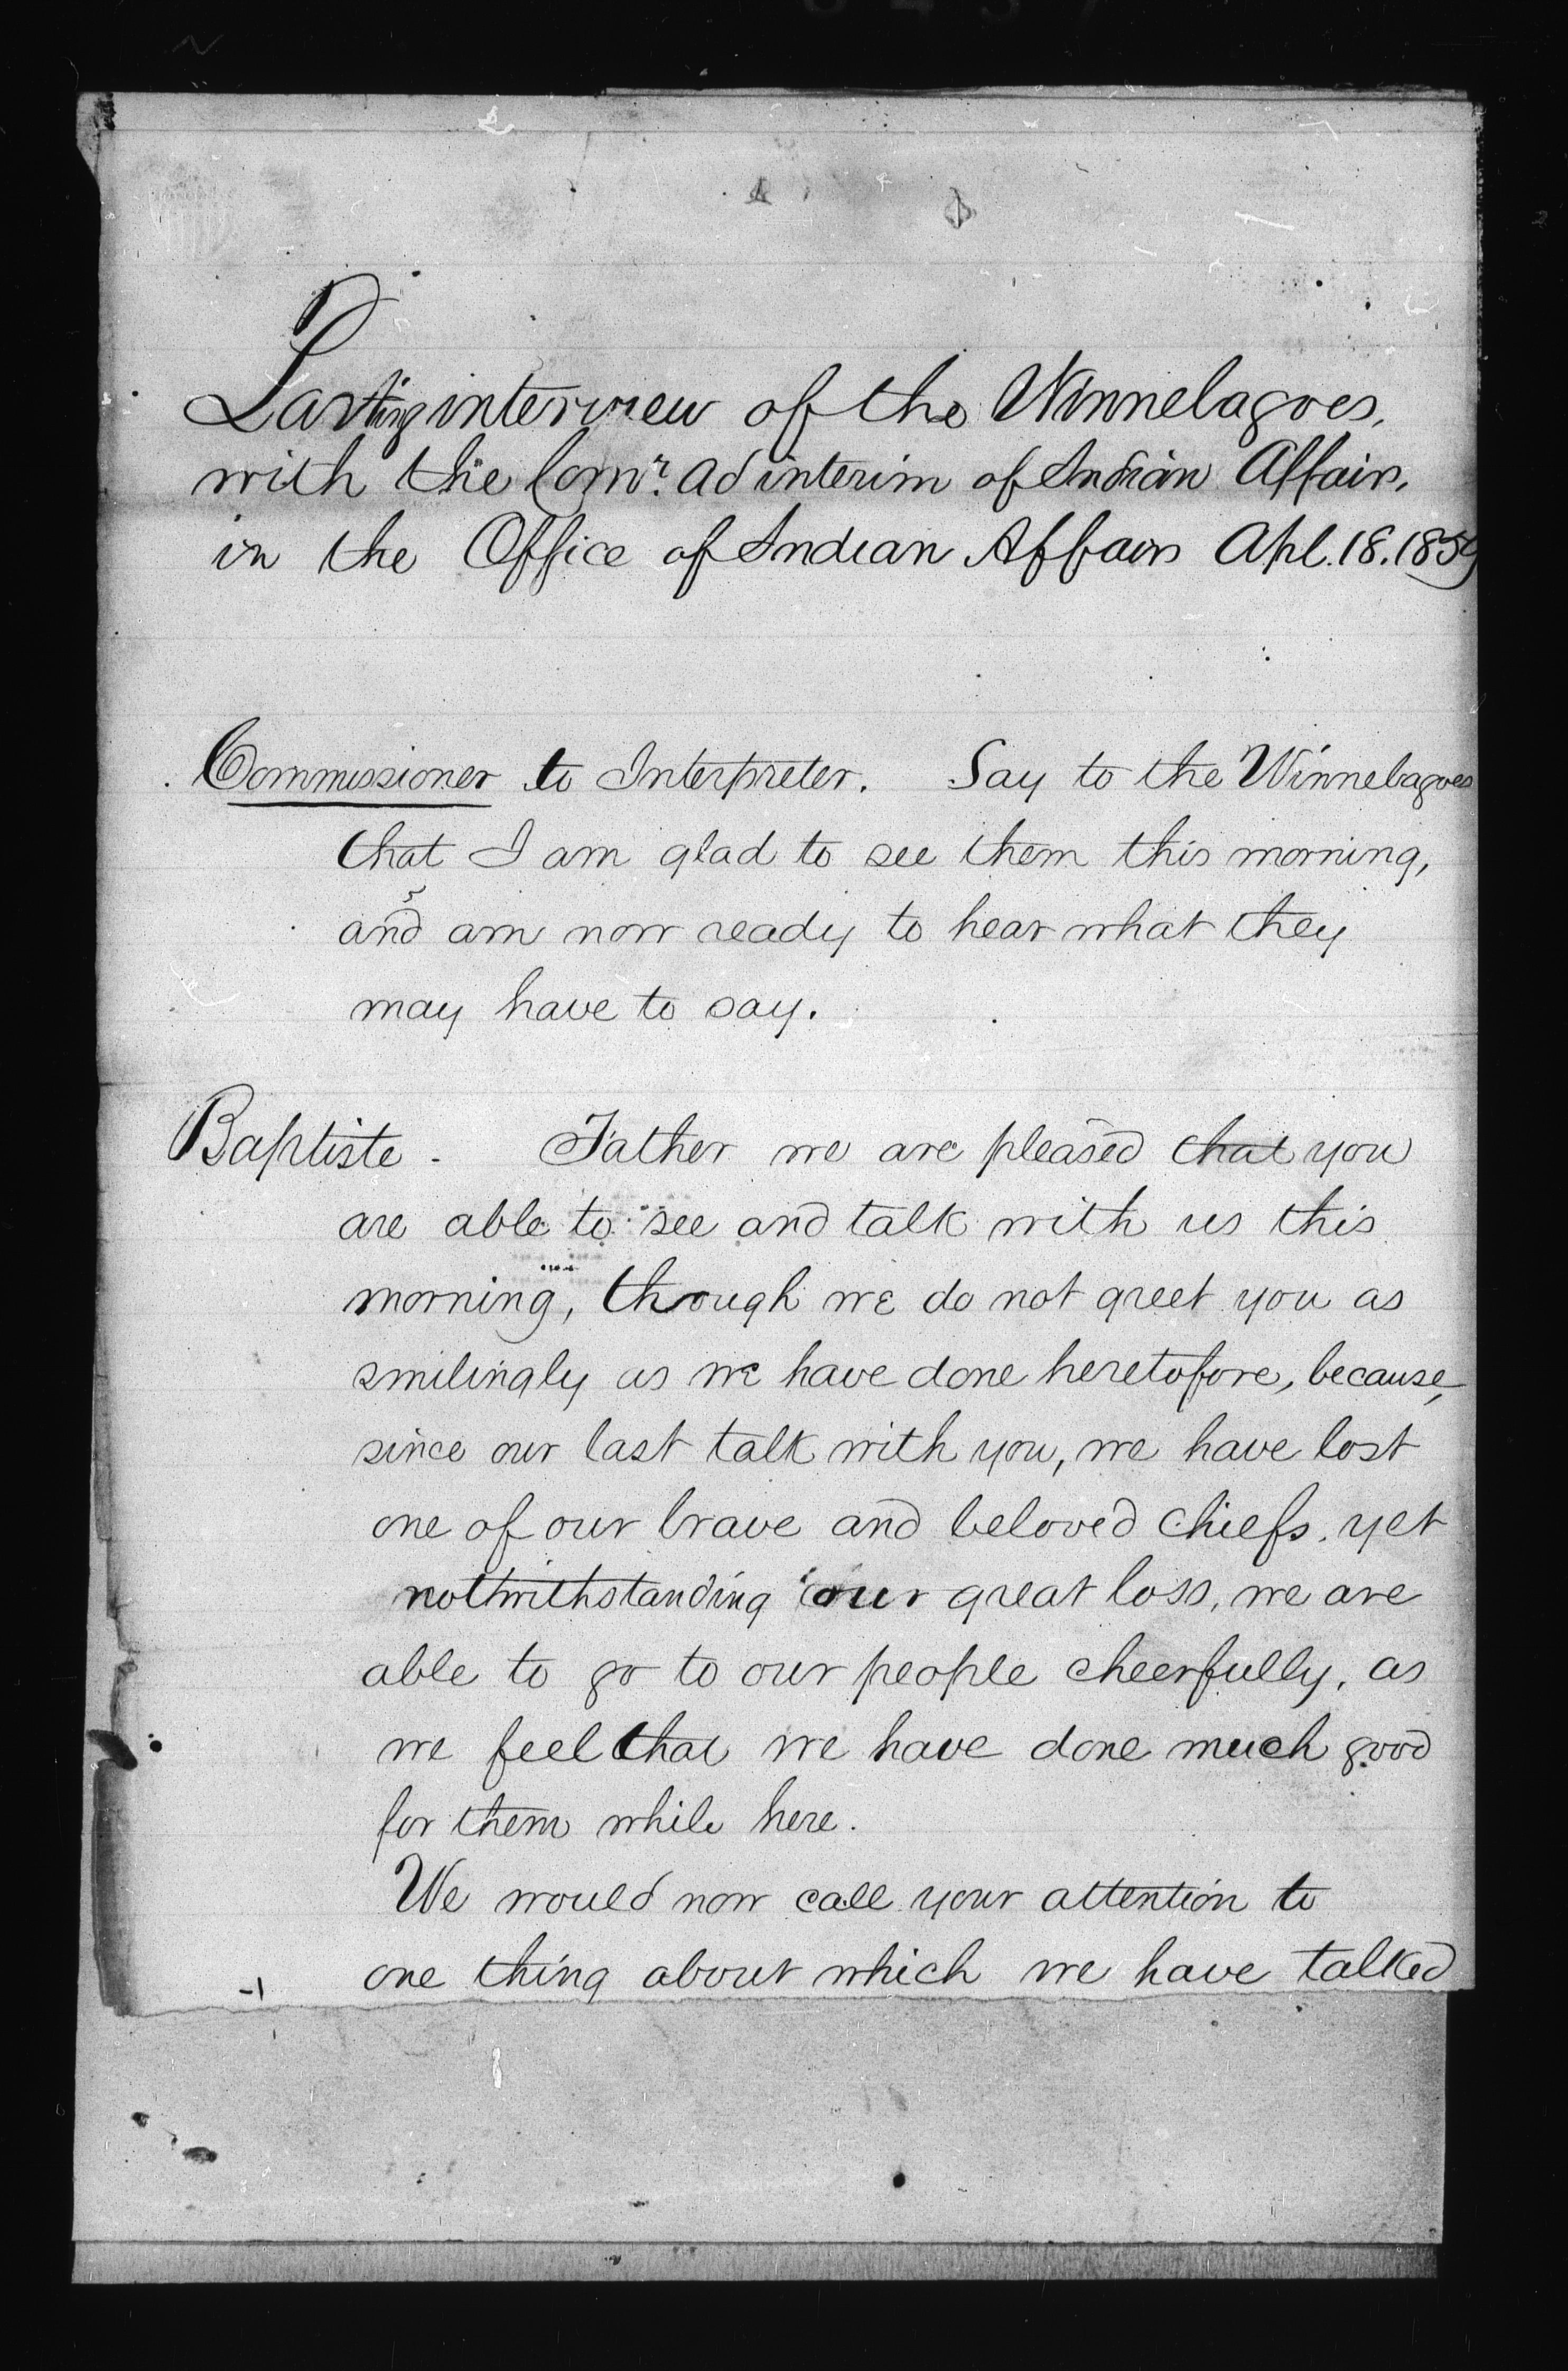 Parting interview of the Winnebagoes,
with the Comr. ad interim of Indian Affairs,
in the Office of Indian Affairs Apl. 18. 1859
Commissioner to Interpreter. Say to the Winnebagoes
that I am glad to see them this morning,
and am now ready to hear what they
may have to say.
Baptiste - Father we are pleased that you
are able to see and talk with us this
morning, though we do not greet you as
smilingly as we have done heretofore, because,
since our last talk with you, we have lost
one of our brave and beloved chiefs. yet
notwithstanding our great loss, we are
able to go to our people cheerfully, as
we feel that we have done much good
for them while here.
We would now call your attention to
one thing about which we have talked